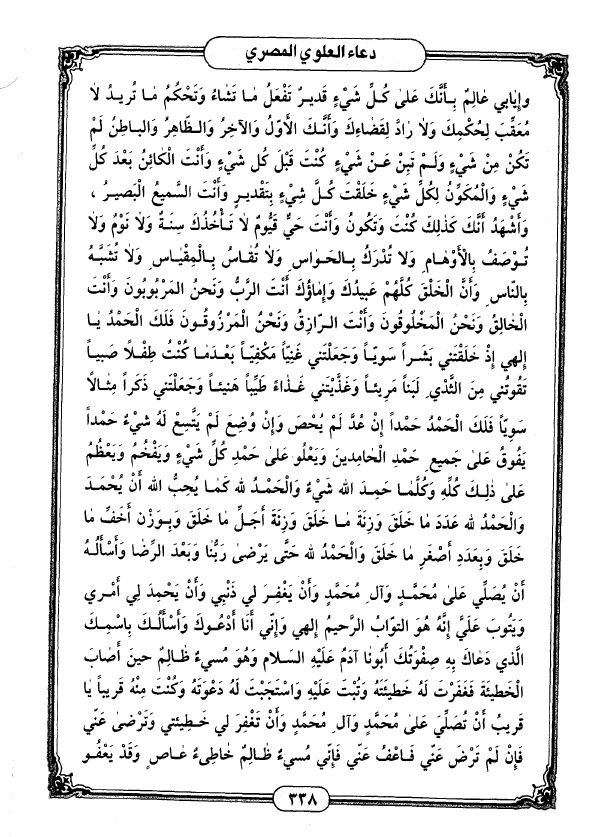 دعاء العلوي المصري
وإيابي عٰالِمٌ بِأَنَّكَ عَلىٰ كُلِّ شَيْءٍ قَديرٌ تَفْعَلُ مٰا تَشٰاءُ وَتَحْكُمُ مٰا تُريدُ لاٰ
مُعَقِّبَ لِحُكْمِكَ وَلاٰ رٰادَّ لِقَضٰاءِكَ وَأَنَّكَ الأَوَّلُ وَالآخِرُ وَالظّٰاهِرُ وَالبٰاطِنُ لَمْ
تَكُنْ مِنْ شَيْءٍ وَلَمْ تَبِنْ عَنْ شَيْءٍ كُنْتَ قَبْلَ كُلِ شَيْءٍ وَأَنْتَ الْكٰائِنُ بَعْدَ كُلِّ
شَيْءٍ وَالْمُكَوِّنُ لِكُلِّ شَيْءٍ خَلَقْتَ كُلَّ شَيْءٍ بِتَقْديرٍ وَأَنْتَ السَّميعُ الْبَصيرُ ،
وَأَشْهَدُ أَنَّكَ كَذٰلِكَ كُنْتَ وَتَكُونُ وَأَنْتَ حَيٌّ قَيُّومٌ لاٰ تَأْخُذُكَ سِنَةٌ وَلاٰ نَوْمٌ وَلاٰ
تُوْصَفُ بِالأَوْهٰامِ وَلاٰ تُدْرَكُ بِالحَوٰاسِ وَلاٰ تُقٰاسُ بِالْمِقْيٰاسِ وَلاٰ تُشَبَّهُ
بِالنّٰاسِ وَأَنَّ الْخَلْقَ كُلَّهُمْ عَبيدُكَ وَإِمٰاؤُكَ أَنْتَ الرَّبُّ وَنَحْنُ المَرْبُوبُونَ وَأَنْتَ
الْخٰالِقُ وَنَحْنُ الْمَخْلُوقُونَ وَأَنْتَ الرّٰازِقُ وَنَحْنُ الْمَرْزُوقُونَ فَلَكَ الْحَمْدُ يٰا
إِلهي إِذْ خَلَقْتَني بَشَراً سَوِيّاً وَجَعَلْتَني غَنِيّاً مَكْفِيّاً بَعْدَمٰا كُنْتُ طِفْلاً صَبِياً
تَقُوتُني مِنَ الثَّدْيِ لَبَناً مَريئاً وَغَذَّيْتَني غَذٰاءً طَيِّباً هَنيئاً وَجَعَلْتَني ذَكَراً مِثٰالاً
سَوِيّاً فَلَكَ الْحَمْدُ حَمْداً إِنْ عُدَّ لَمْ يُحْصَ وَإِنْ وُضِعَ لَمْ يَتَّسِعْ لَهُ شَيْءٌ حَمْداً
يَفُوقُ عَلىٰ جَميعِ حَمْدِ الْحٰامِدينَ وَيَعْلُو عَلىٰ حَمْدِ كُلِّ شَيْءٍ وَيَفْخُمُ وَيَعْظُمُ
عَلىٰ ذٰلِكَ كُلِّهِ وَكُلَّمٰا حَمِدَ الله شَيْءٌ وَالْحَمْدُ لله كَمٰا يُحِبُّ الله أَنْ يُحْمَدَ
وَالْحَمْدُ لله عَدَدَ مٰا خَلَقَ وَزِنَةَ مٰا خَلَقَ وَزِنَةَ أَجَلِّ مٰا خَلَقَ وَبِوَزْنِ أَخَفِّ مٰا
خَلَقَ وَبِعَدَدِ أَصْغَرِ مٰا خَلَقَ وَالْحَمْدُ لله حَتّىٰ يَرْضىٰ رَبُّنٰا وَبَعْدَ الرِّضٰا وَأَسْأَلُهُ
أَنْ يُصَلِّي عَلىٰ مُحَمَّدٍ وَآلِ مُحَمَّدٍ وَأَنْ يَغْفِرَ لي ذَنْبي وَأَنْ يَحْمِدَ لي أَمْري
وَيَتُوبَ عَلَيَّ إِنَّهُ هُوَ التَوّٰابُ الرَّحيمُ إِلهي وَإِنّي أَنَا أَدْعُوكَ وَأَسْأَلُكَ بِاسْمِكَ
الَّذي دَعٰاكَ بِهِ صِفْوَتُكَ أَبُونٰا آدَمُ عَلَيْهِ السَلام وَهُوَ مُسيءٌ ظٰالِمٌ حينَ أَصٰابَ
الْخَطيئَةَ فَغَفَرْتَ لَهُ خَطيئَتَهُ وَتُبْتَ عَلَيْهِ وَاسْتَجَبْتَ لَهُ دَعْوَتَهُ وَكُنْتَ مِنْهُ قَريباً يٰا
قَريبُ أَنْ تُصَلِّيَ عَلىٰ مُحَمَّدٍ وَآلِ مُحَمَّدٍ وَأَنْ تَغْفِرَ لي خَطيئَتي وَتَرْضىٰ عَنّي
فَإِنْ لَمْ تَرْضَ عَنّي فَاعْفُ عَنّي فَإِنّي مُسيءٌ ظٰالِمٌ خٰاطِىءٌ عٰاصٍ وَقَدْ يَعْفُو
٣٣٨